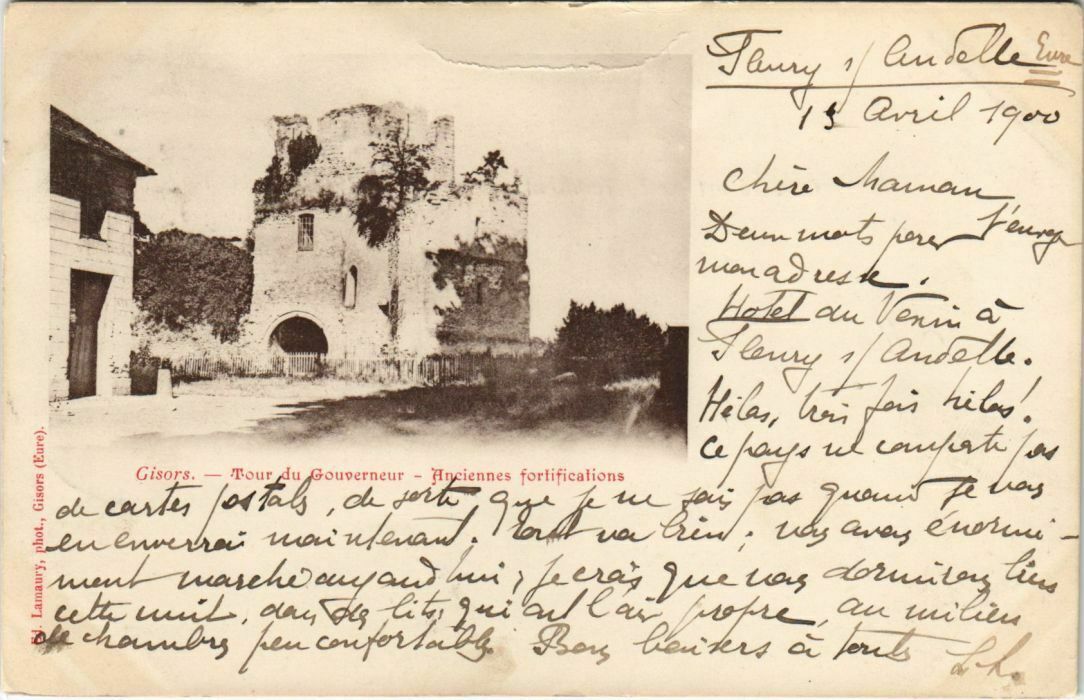 Fleury s/ Andelle Eure
15 Avril 1900
Chère Maman
Deux mots pour t'envoyer
mon adresse.
Hôtel du Vexin à
Fleury s/ Andelle.
Hélas, trois fois hélas!
Ce pays ne comporte pas
de cartes postales, de sorte que je ne sais pas quand je vous
en enverrai maintenant. Tout va bien; nous avons énormé-
ment marché aujourd'hui; je crois que nous dormirons bien
cette nuit, dans des lits qui ont l'air propre, au milieu
de chambres peu confortables. Bons baisers à toutes
Gisors. — Tour du Gouverneur - Anciennes fortifications
Lamaury, phot., Gisors (Eure).